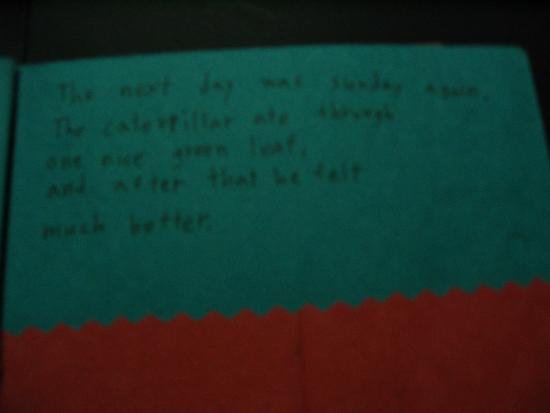 The next day was sunday again.
The caterpillar ate through
one nice green leaf,
and after that he felt
much better.